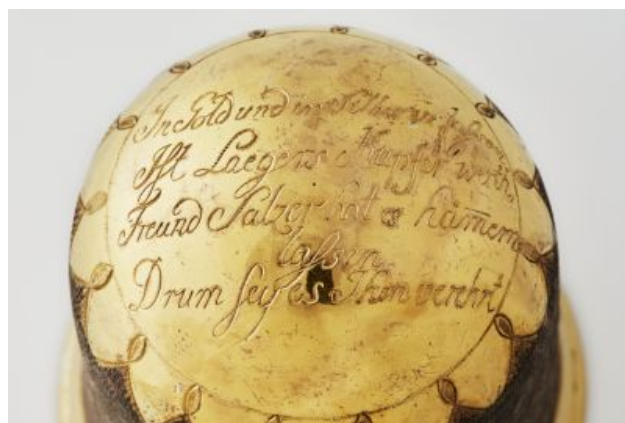 In Gold und in Silber zu faſsen
Iſt Laegers Kupfer werth,
Freund Salzer hat es ham̄ern
laſsen,
Drum ſey es Ihm verehrt